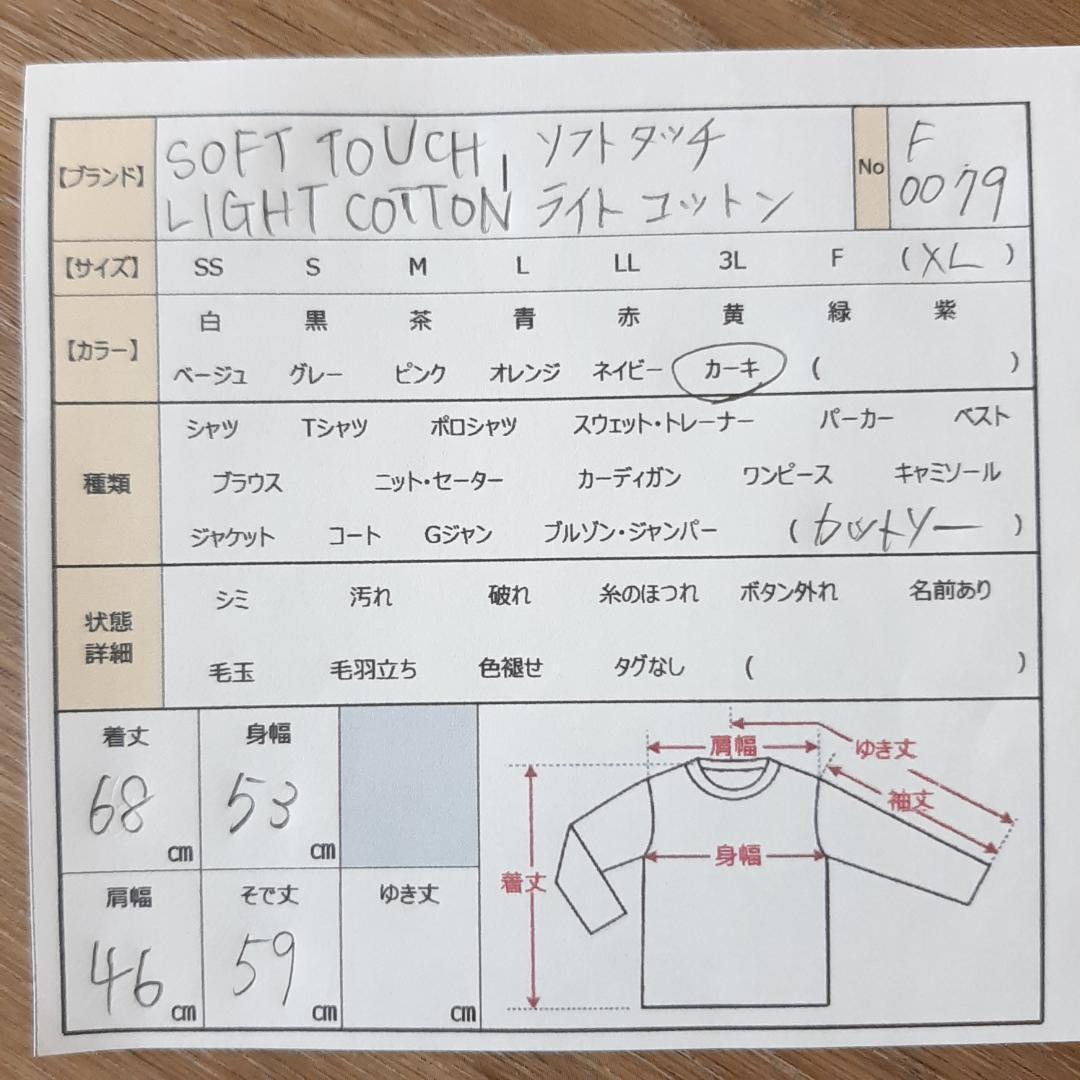 【ブランド】 SOFT TOUCH, ソフトタッチ No F
LIGHT COTTON ライトコットン 0079
【サイズ】 SS S M L LL 3L F (XL)
【カラー】 白 黒 茶 青 赤 黄 緑 紫
ベージュ グレー ピンク オレンジ ネイビー カーキ ( )
種類 シャツ Tシャツ ポロシャツ スウェット・トレーナー パーカー ベスト
ブラウス ニット・セーター カーディガン ワンピース キャミソール
ジャケット コート Gジャン ブルゾン・ジャンパー (カットソー)
状態
詳細
シミ 汚れ 破れ 糸のほつれ ボタン外れ 名前あり
毛玉 毛羽立ち 色褪せ タグなし ( )
着丈 身幅
68 cm 53 cm
肩幅 そで丈 ゆき丈
46 cm 59 cm cm
肩幅 ゆき丈
袖丈
身幅
着丈